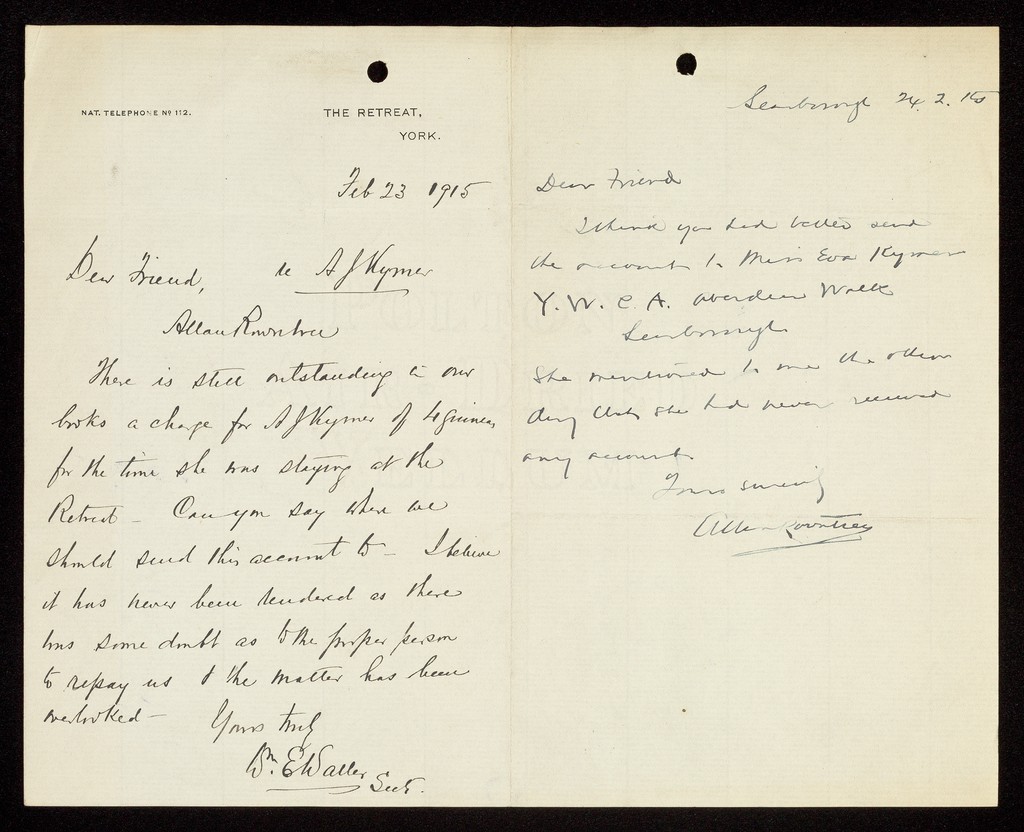 NAT. TELEPHONE Nº 112.
THE RETREAT,
YORK.
Feb 23 1915
Dear Friend, re A J Kymer
Allan Rowntree
There is still outstanding in our
books a charge for A J Kymer of 4 guineas
for the time she was staying at the
Retreat - Can you say where we
should send this account to - I believe
it has never been rendered as there
was some doubt as to the proper person
to repay us & the matter has been
overlooked -
Yours truly
Wm. E Waller
Secty.
Scarborough 24. 2. 15
Dear Friend
I think you had better send
the account to Miss Eva Kymer
Y. W. C. A. Aberdeen Walk
Scarborough
She mentioned to me the other
day that she had never received
any account.
Yours sincerely
Allan Rowntree